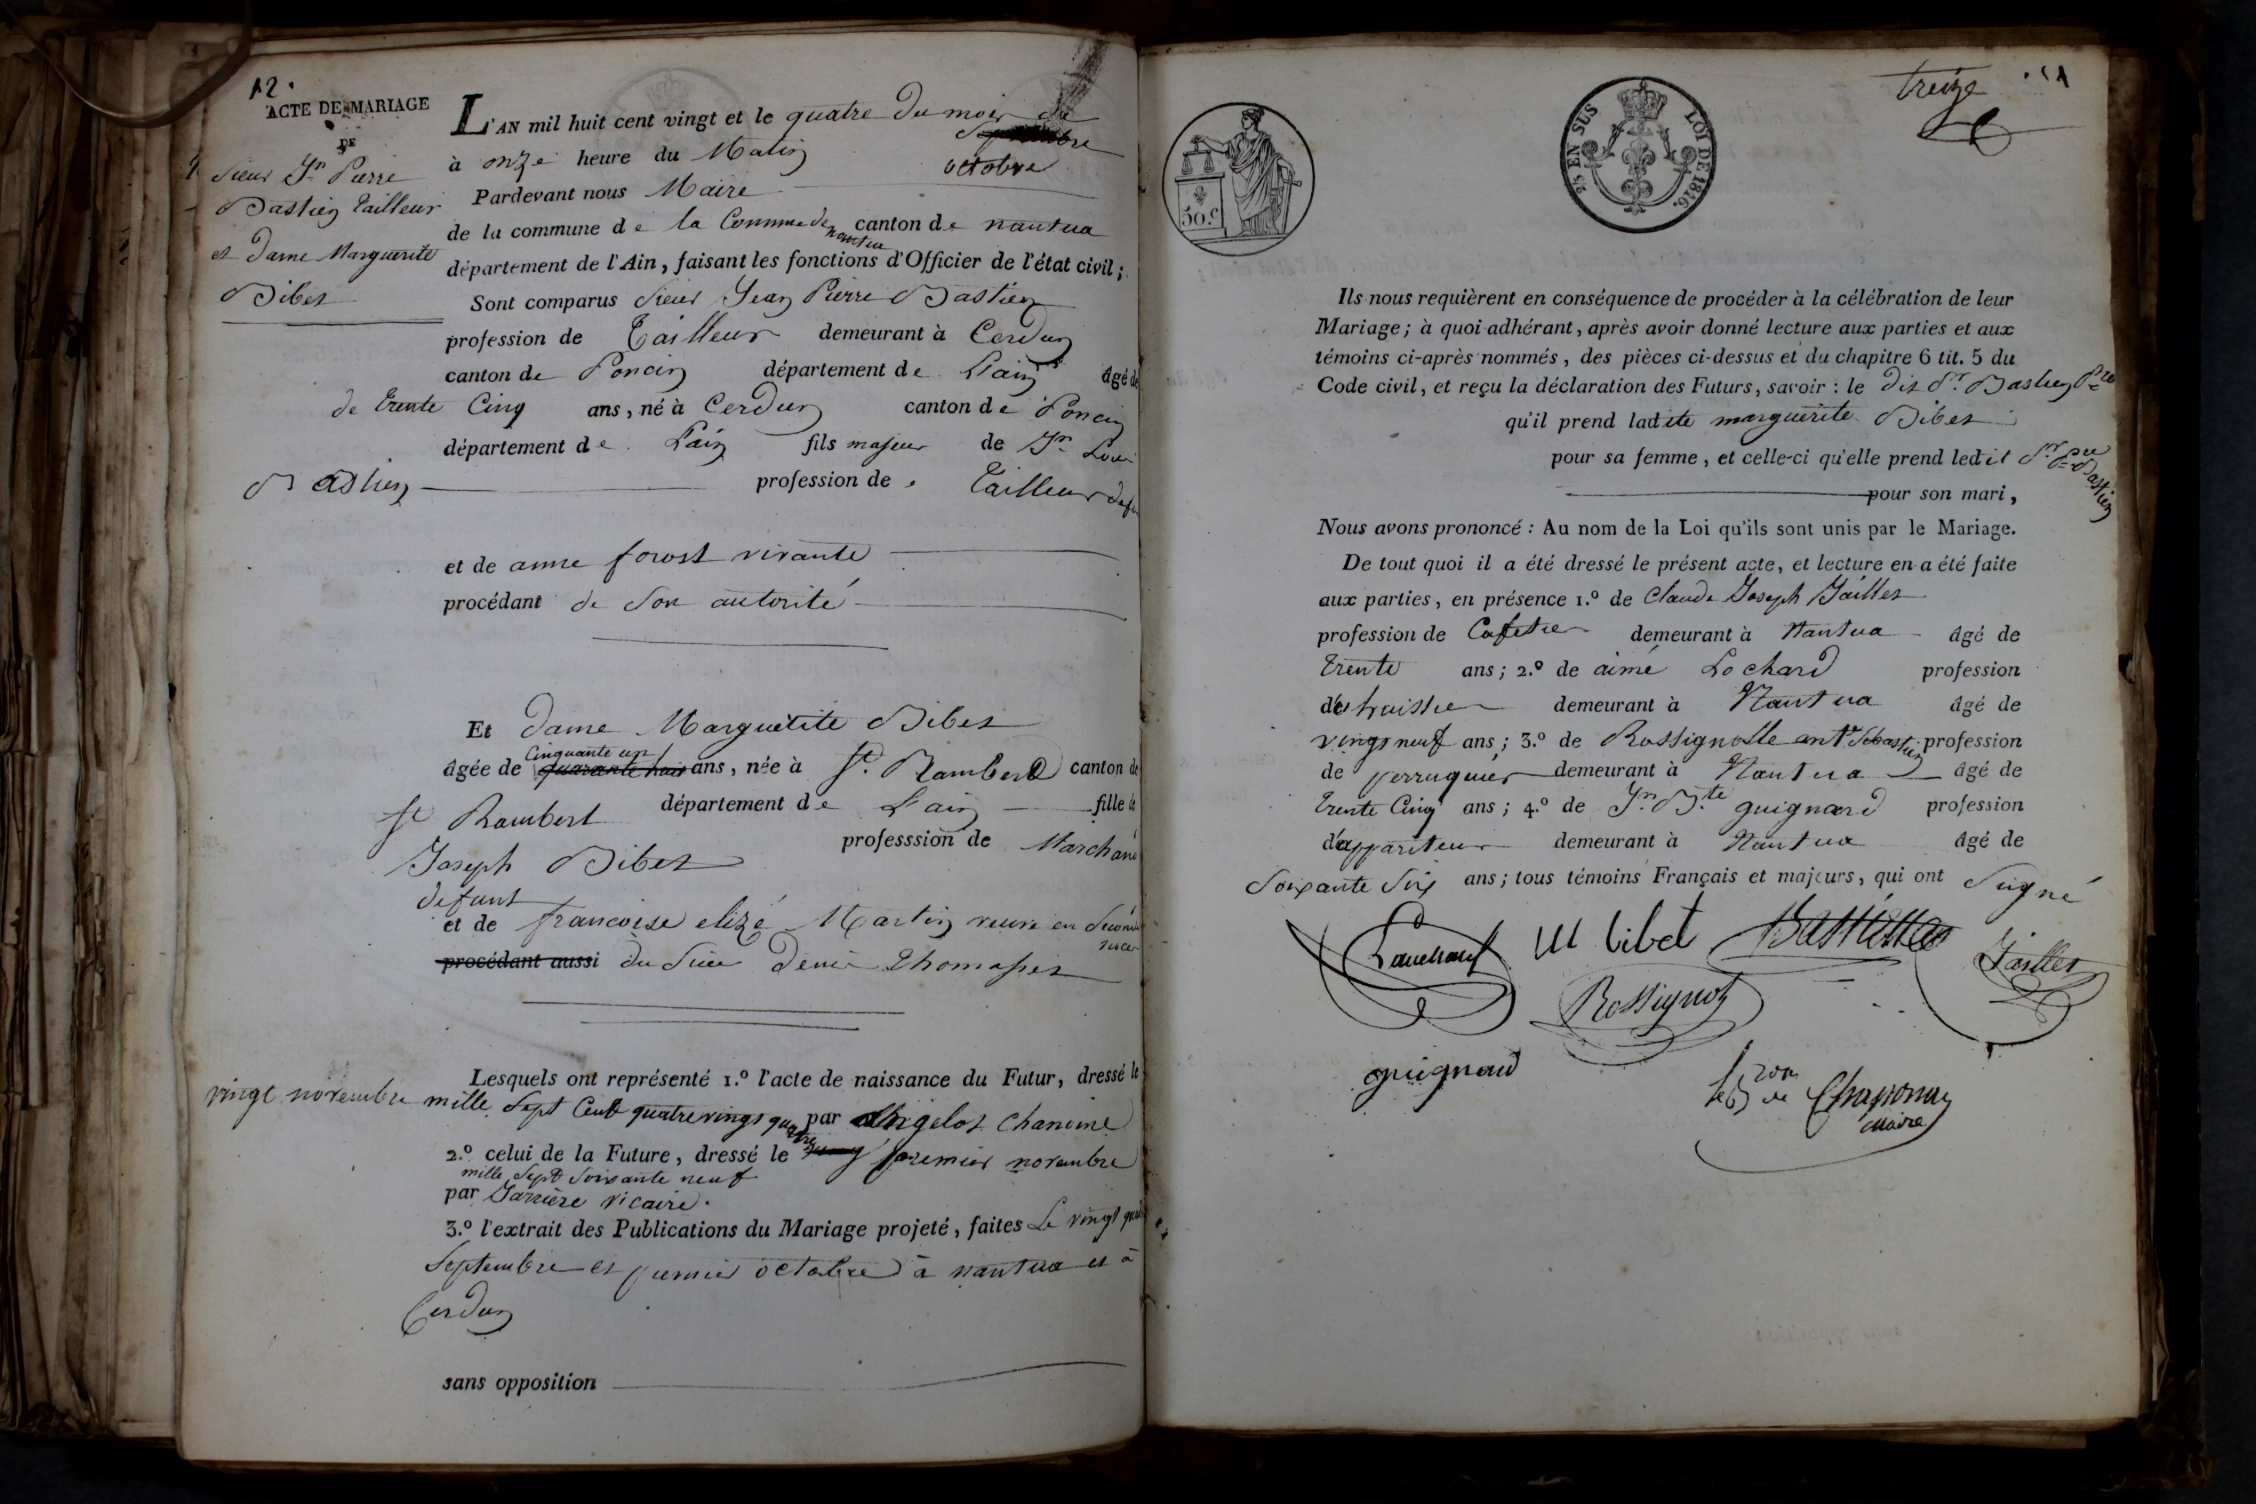 12.
ACTE DE MARIAGE
DE
Sieur Jn Pierre
Bastien tailleur
et Dame Marguerite
Bibet
L'AN mil huit cent vingt et le quatre du mois de
Septembre
à onze heure du Matin octobre
Pardevant nous Maire
de la commune de la Commune de nantua canton de nantua
département de l'Ain, faisant les fonctions d'Officier de l'état civil;
Sont comparus Sieur Jean Pierre Bastien
profession de Tailleur demeurant à Cerdon
canton de Poncin département de L'ain âgé de
de trente Cinq ans, né à Cerdon canton de Poncin
département de L'ain fils majeur de Jn Loui
Bastien profession de Tailleur defu
et de anne forost vivante
procédant de Son autorité
Et Dame Marguerite Bibet
Cinquante un
âgée de ans, née à St. Rambert canton de
St Rambert département de L'ain fille de
Joseph Bibet professsion de Marchand
defunt
et de francoise elizé Martin veuve en Secondes
noces
procédant aussi du Sieur Denis Thomasset
Lesquels ont représenté 1.º l'acte de naissance du Futur, dressé le
vingt novembre mille Sept Cent quatrevingt quatre par Angelot chanoine
2.º celui de la Future, dressé le premier novembre
mille Sept Soixante neuf
par Jarrière vicaire.
3.º l'extrait des Publications du Mariage projeté, faites Le vingt quatre
Septembre et premier octobre à nantua et à
Cerdon
sans opposition
treize
25 EN SUS LOI DE 1816.
50.c
Ils nous requièrent en conséquence de procéder à la célébration de leur
Mariage; à quoi adhérant, après avoir donné lecture aux parties et aux
témoins ci-après nommés, des pièces ci-dessus et du chapitre 6 tit. 5 du
Code civil, et reçu la déclaration des Futurs, savoir: le dit Sr. Bastien Pre
qu'il prend ladite marguerite Bibet
pour sa femme, et celle-ci qu'elle prend ledit Sr Pre Bastien
pour son mari,
Nous avons prononcé: Au nom de la Loi qu'ils sont unis par le Mariage.
De tout quoi il a été dressé le présent acte, et lecture en a été faite
aux parties, en présence 1.º de Claude Joseph Jaillet
profession de Cafetier demeurant à Nantua âgé de
trente ans; 2.º de aimé Lochard profession
d'huissier demeurant à Nantua âgé de
vingt neuf ans; 3.º de Rossignolle ant.e Sébastien profession
de perruquier demeurant à Nantua âgé de
trente Cinq ans; 4.º de Jn. Bte. guignard profession
d'appariteur demeurant à Nantua âgé de
Soixante Six ans; tous témoins Français et majeurs, qui ont Signé
M bibet Bastien Jaillet
Rossignol
guignard
le Bon de Chapponay
maire